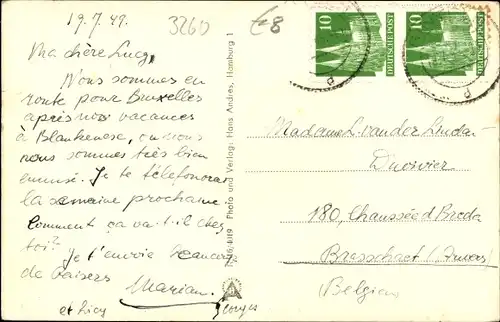 19.7.49.
3260
€8
Ma chère Lucy,
Nous sommes en
route pour Bruxelles
après nos vacances
à Blankenese, où nous
nous sommes très bien
amusé. Je te téléfonerai
la semaine prochaine.
Comment ça va-t-il chez
toi?
Je t'envoie beaucoup
de baisers
Marian.
et Lucy
Georges
Photo und Verlag: Hans Andres, Hamburg 1
10
DEUTSCHE POST
10
DEUTSCHE POST
Madame L. van der Linden-
Duvivier
180, Chaussée d Breda
Brasschaet (Anvers)
(Belgien)